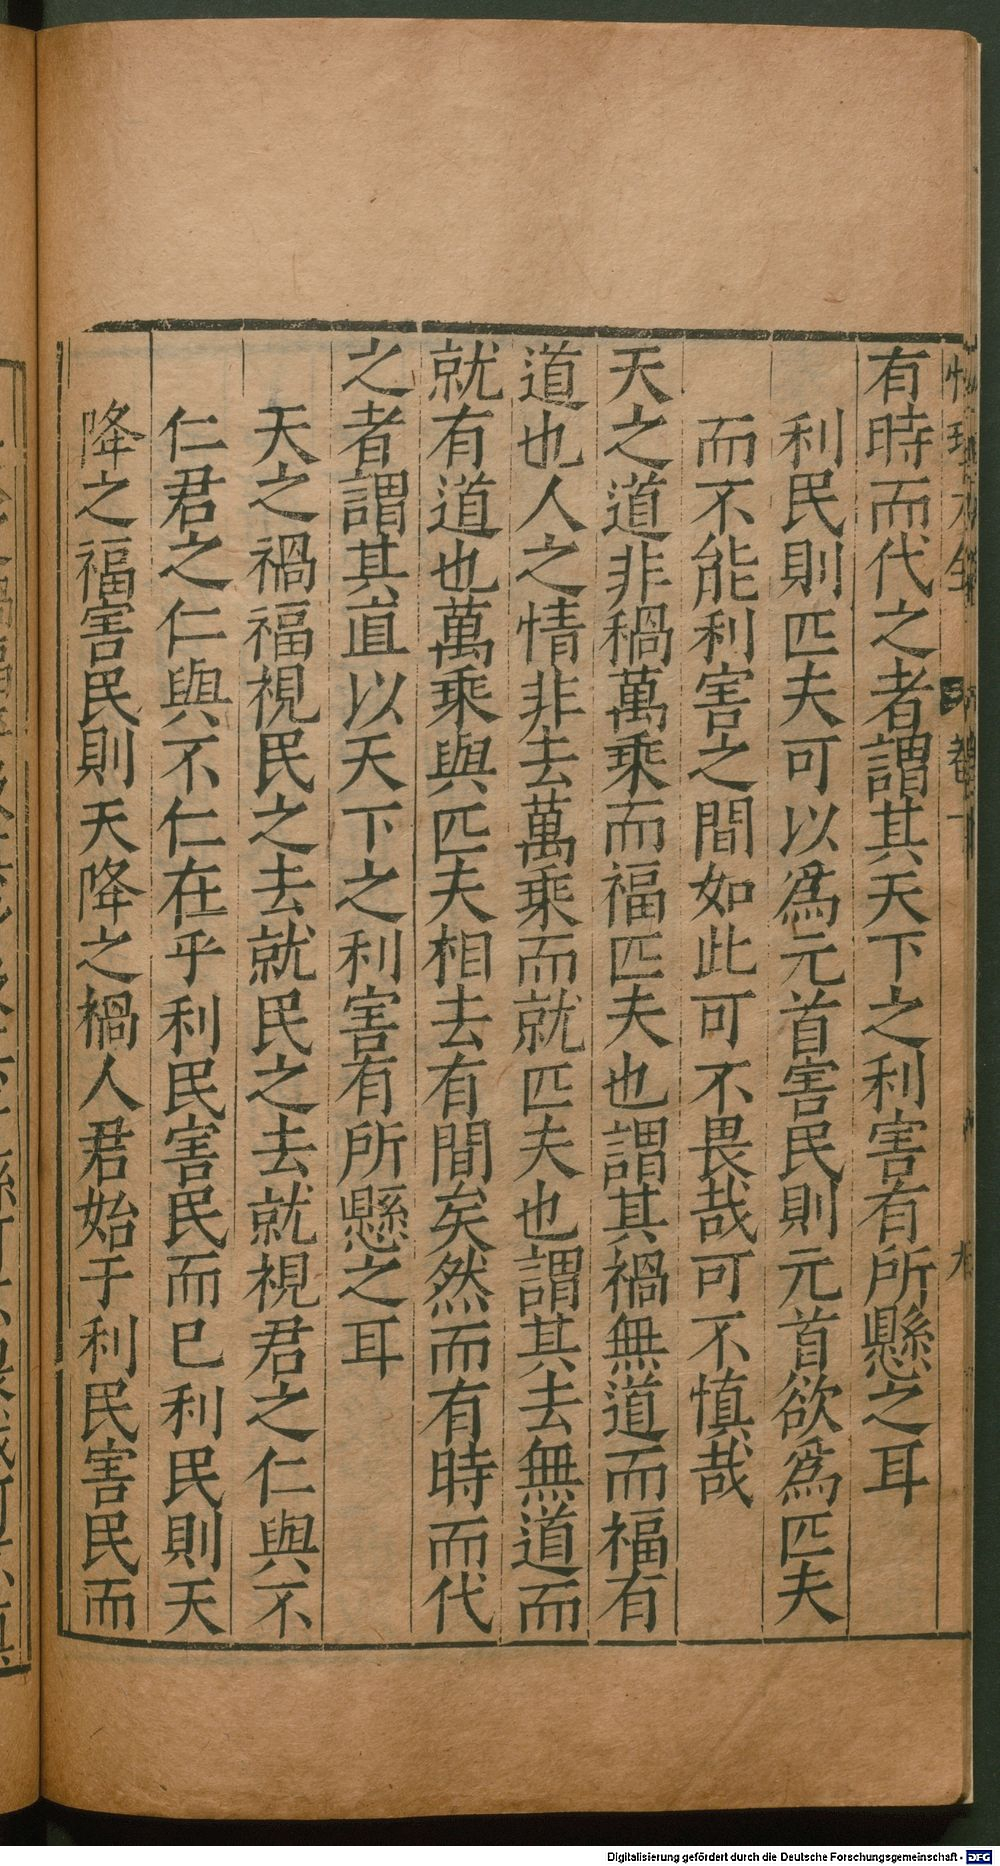 有時而代之者謂其天下之利害有所懸之耳
利民則匹夫可以爲元首害民則元首欲爲匹夫
而不能利害之間如此可不畏哉可不慎哉
天之道非禍萬乘而福匹夫也謂其禍無道而福有
道也人之情非去萬乘而就匹夫也謂其去無道而
就有道也萬乘與匹夫相去有間矣然而有時而代
之者謂其直以天下之利害有所懸之耳
天之禍福視民之去就民之去就視君之仁與不
仁君之仁與不仁在乎利民害民而已利民則天
降之福害民則天降之禍人君始于利民害民而
Digitalisierung gefördert durch die Deutsche Forschungsgemeinschaft - DFG